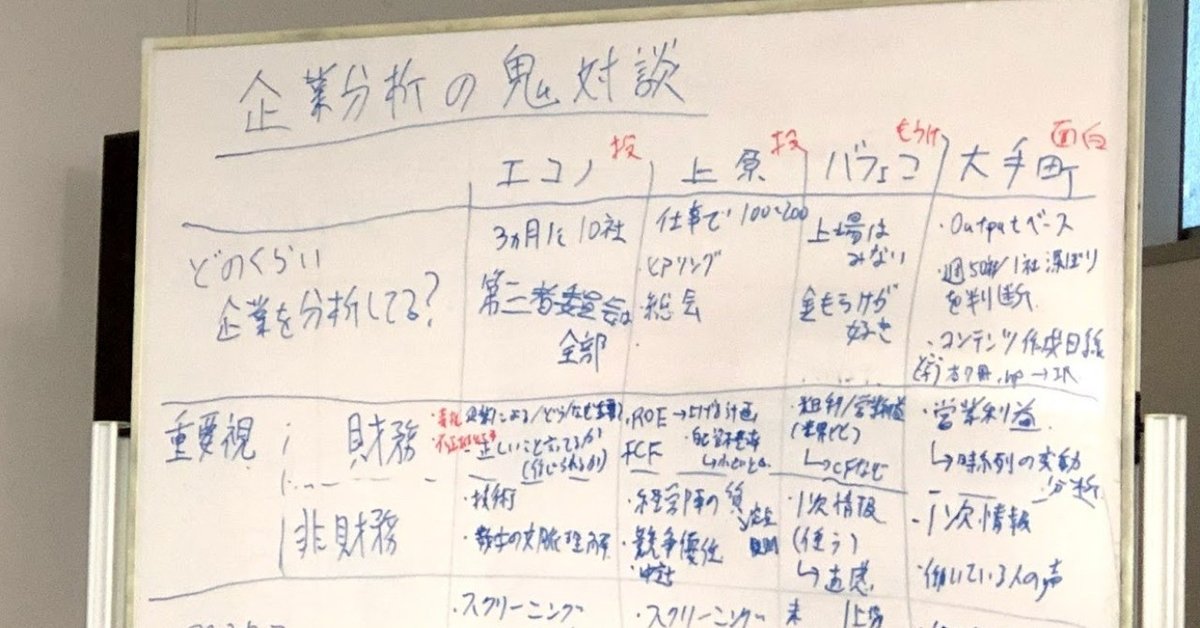 企業分析の鬼対談
エコノ 投
上原 投
バフェコ もうけ
大手町 面白
どのくらい
企業を分析してる?
3ヵ月に10社
第三者委員会は
全部
仕事で100~200
ヒアリング
・総会
上場は
みない
金もうけが
好き
・Outputベース
・週50本/1社深ぼり
を判断
・コンテンツ作成目線
重要視
財務
正しいこと言ってるか
・ROE→
FCF
・粗利/営業利益
・営業利益
↳時系列の変動
分析
非財務
・技術
・数字の文脈理解
・経営陣の質
・競争優位
・1次情報
(使う)
↳直感
・1次情報
・働いている人の声
・スクリーニング
・スクリーニング
未上場